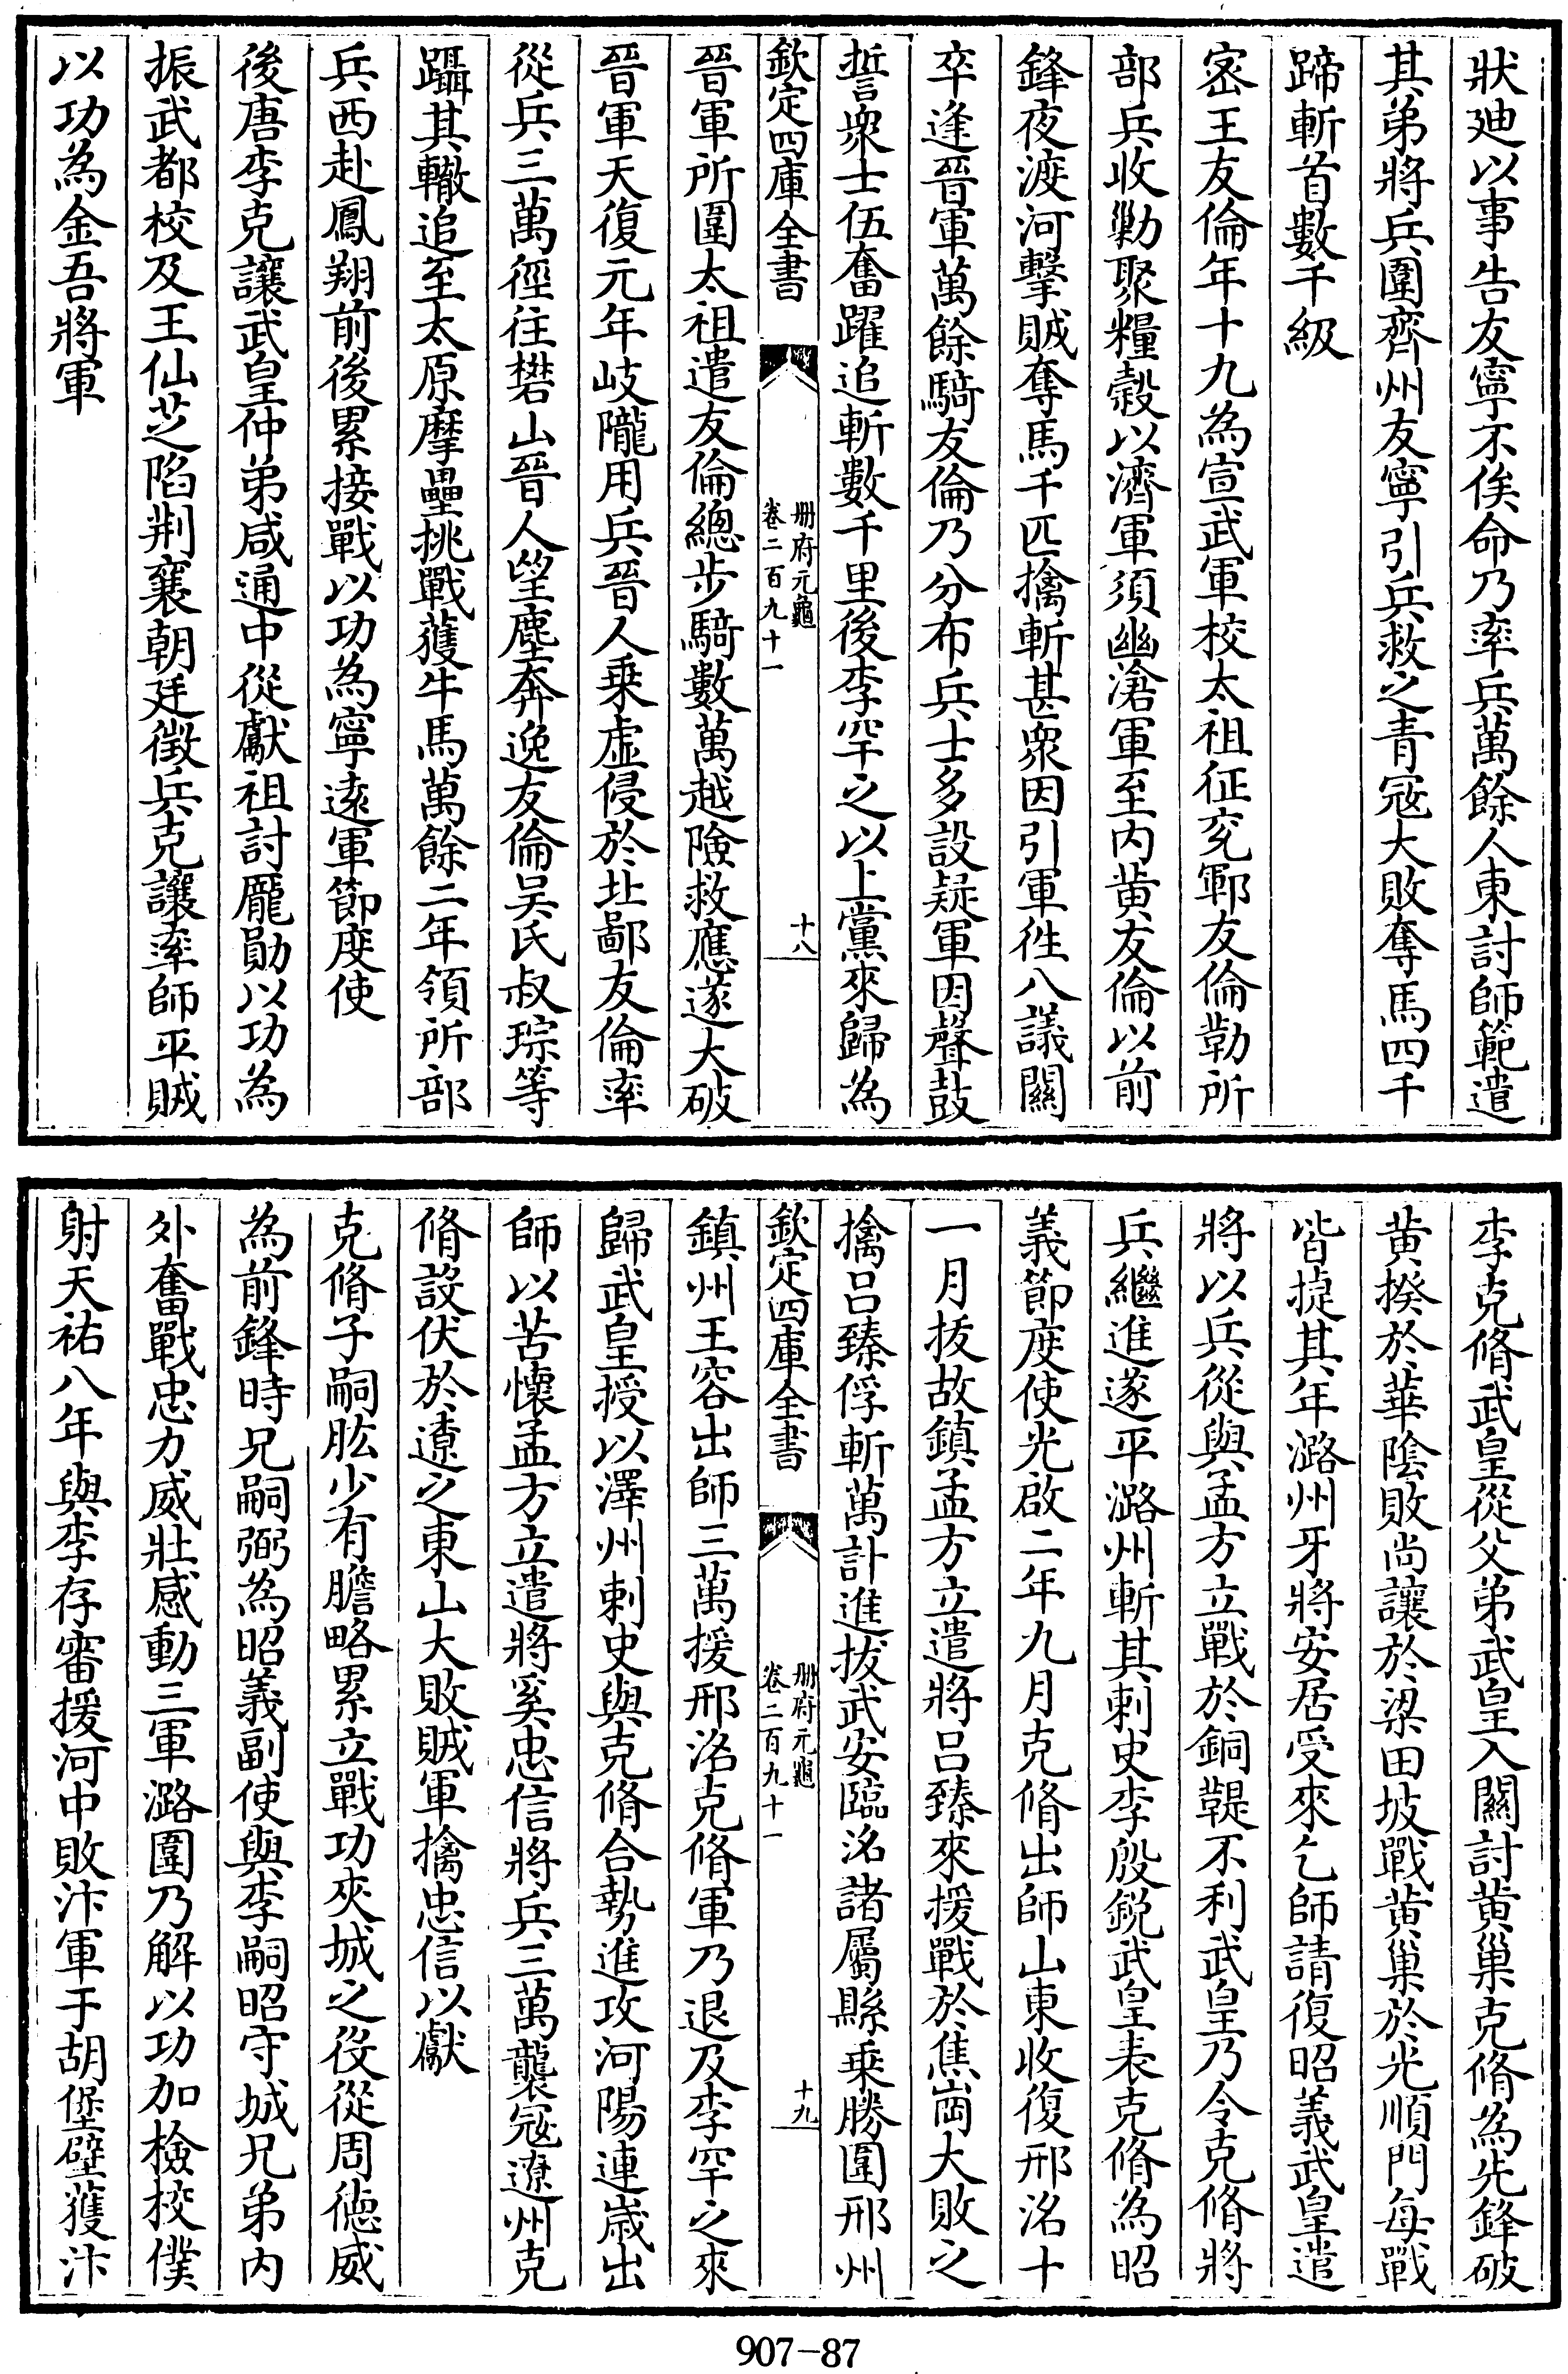 狀廸以事告友寧不俟命乃率兵萬餘人東討師範遣
其弟將兵圍齊州友寧引兵救之青冦大敗奪馬四千
蹄斬首數千級
密王友倫年十九為宣武軍校太祖征兖鄆友倫勒所
部兵收勦聚糧穀以濟軍須幽滄軍至内黄友倫以前
鋒夜渡河擊賊奪馬千匹擒斬甚衆因引軍徃八議關
卒逢晉軍萬餘騎友倫乃分布兵士多設疑軍因聲鼓
誓衆士伍奮躍追斬數千里後李罕之以上黨來歸為
欽定四庫全書
册府元龜
卷二百九十一
十八
晉軍所圍太祖遣友倫總步騎數萬越險救應遂大破
晉軍天復元年岐隴用兵晉人乗虚侵於北鄙友倫率
從兵三萬徑往礬山晉人望塵奔逸友倫吴氏叔琮等
躡其轍追至太原摩壘挑戰獲牛馬萬餘二年領所部
兵西赴鳳翔前後累接戰以功為寧遠軍節度使
後唐李克讓武皇仲弟咸通中從獻祖討龎勛以功為
振武都校及王仙芝陷荆襄朝廷徵兵克讓率師平賊
以功為金吾將軍
李克脩武皇從父弟武皇入關討黄巢克脩為先鋒破
黄揆於華隂敗尚讓於梁田坡戰黄巢於光順門每戰
皆捷其年潞州牙將安居受來乞師請復昭義武皇遣
將以兵從與孟方立戰於銅鞮不利武皇乃令克脩將
兵繼進遂平潞州斬其刺史李殷鋭武皇表克脩為昭
義節度使光啟二年九月克脩出師山東收復邢洺十
一月拔故鎮孟方立遣將吕臻來援戰於焦崗大敗之
擒吕臻俘斬萬計進拔武安臨洺諸屬縣乗勝圍邢州
欽定四庫全書
册府元龜
卷二百九十一
十九
鎮州王容出師三萬援邢洺克脩軍乃退及李罕之來
歸武皇授以澤州刺史與克脩合勢進攻河陽連歲出
師以苦懷孟方立遣將奚忠信將兵三萬襲冦遼州克
脩設伏於遼之東山大敗賊軍擒忠信以獻
克脩子嗣肱少有膽略累立戰功夾城之役從周徳威
為前鋒時兄嗣弼為昭義副使與李嗣昭守城兄弟内
外奮戰忠力威壯感動三軍潞圍乃解以功加檢校僕
射天祐八年與李存審援河中敗汴軍于胡堡壁獲汴
907-87